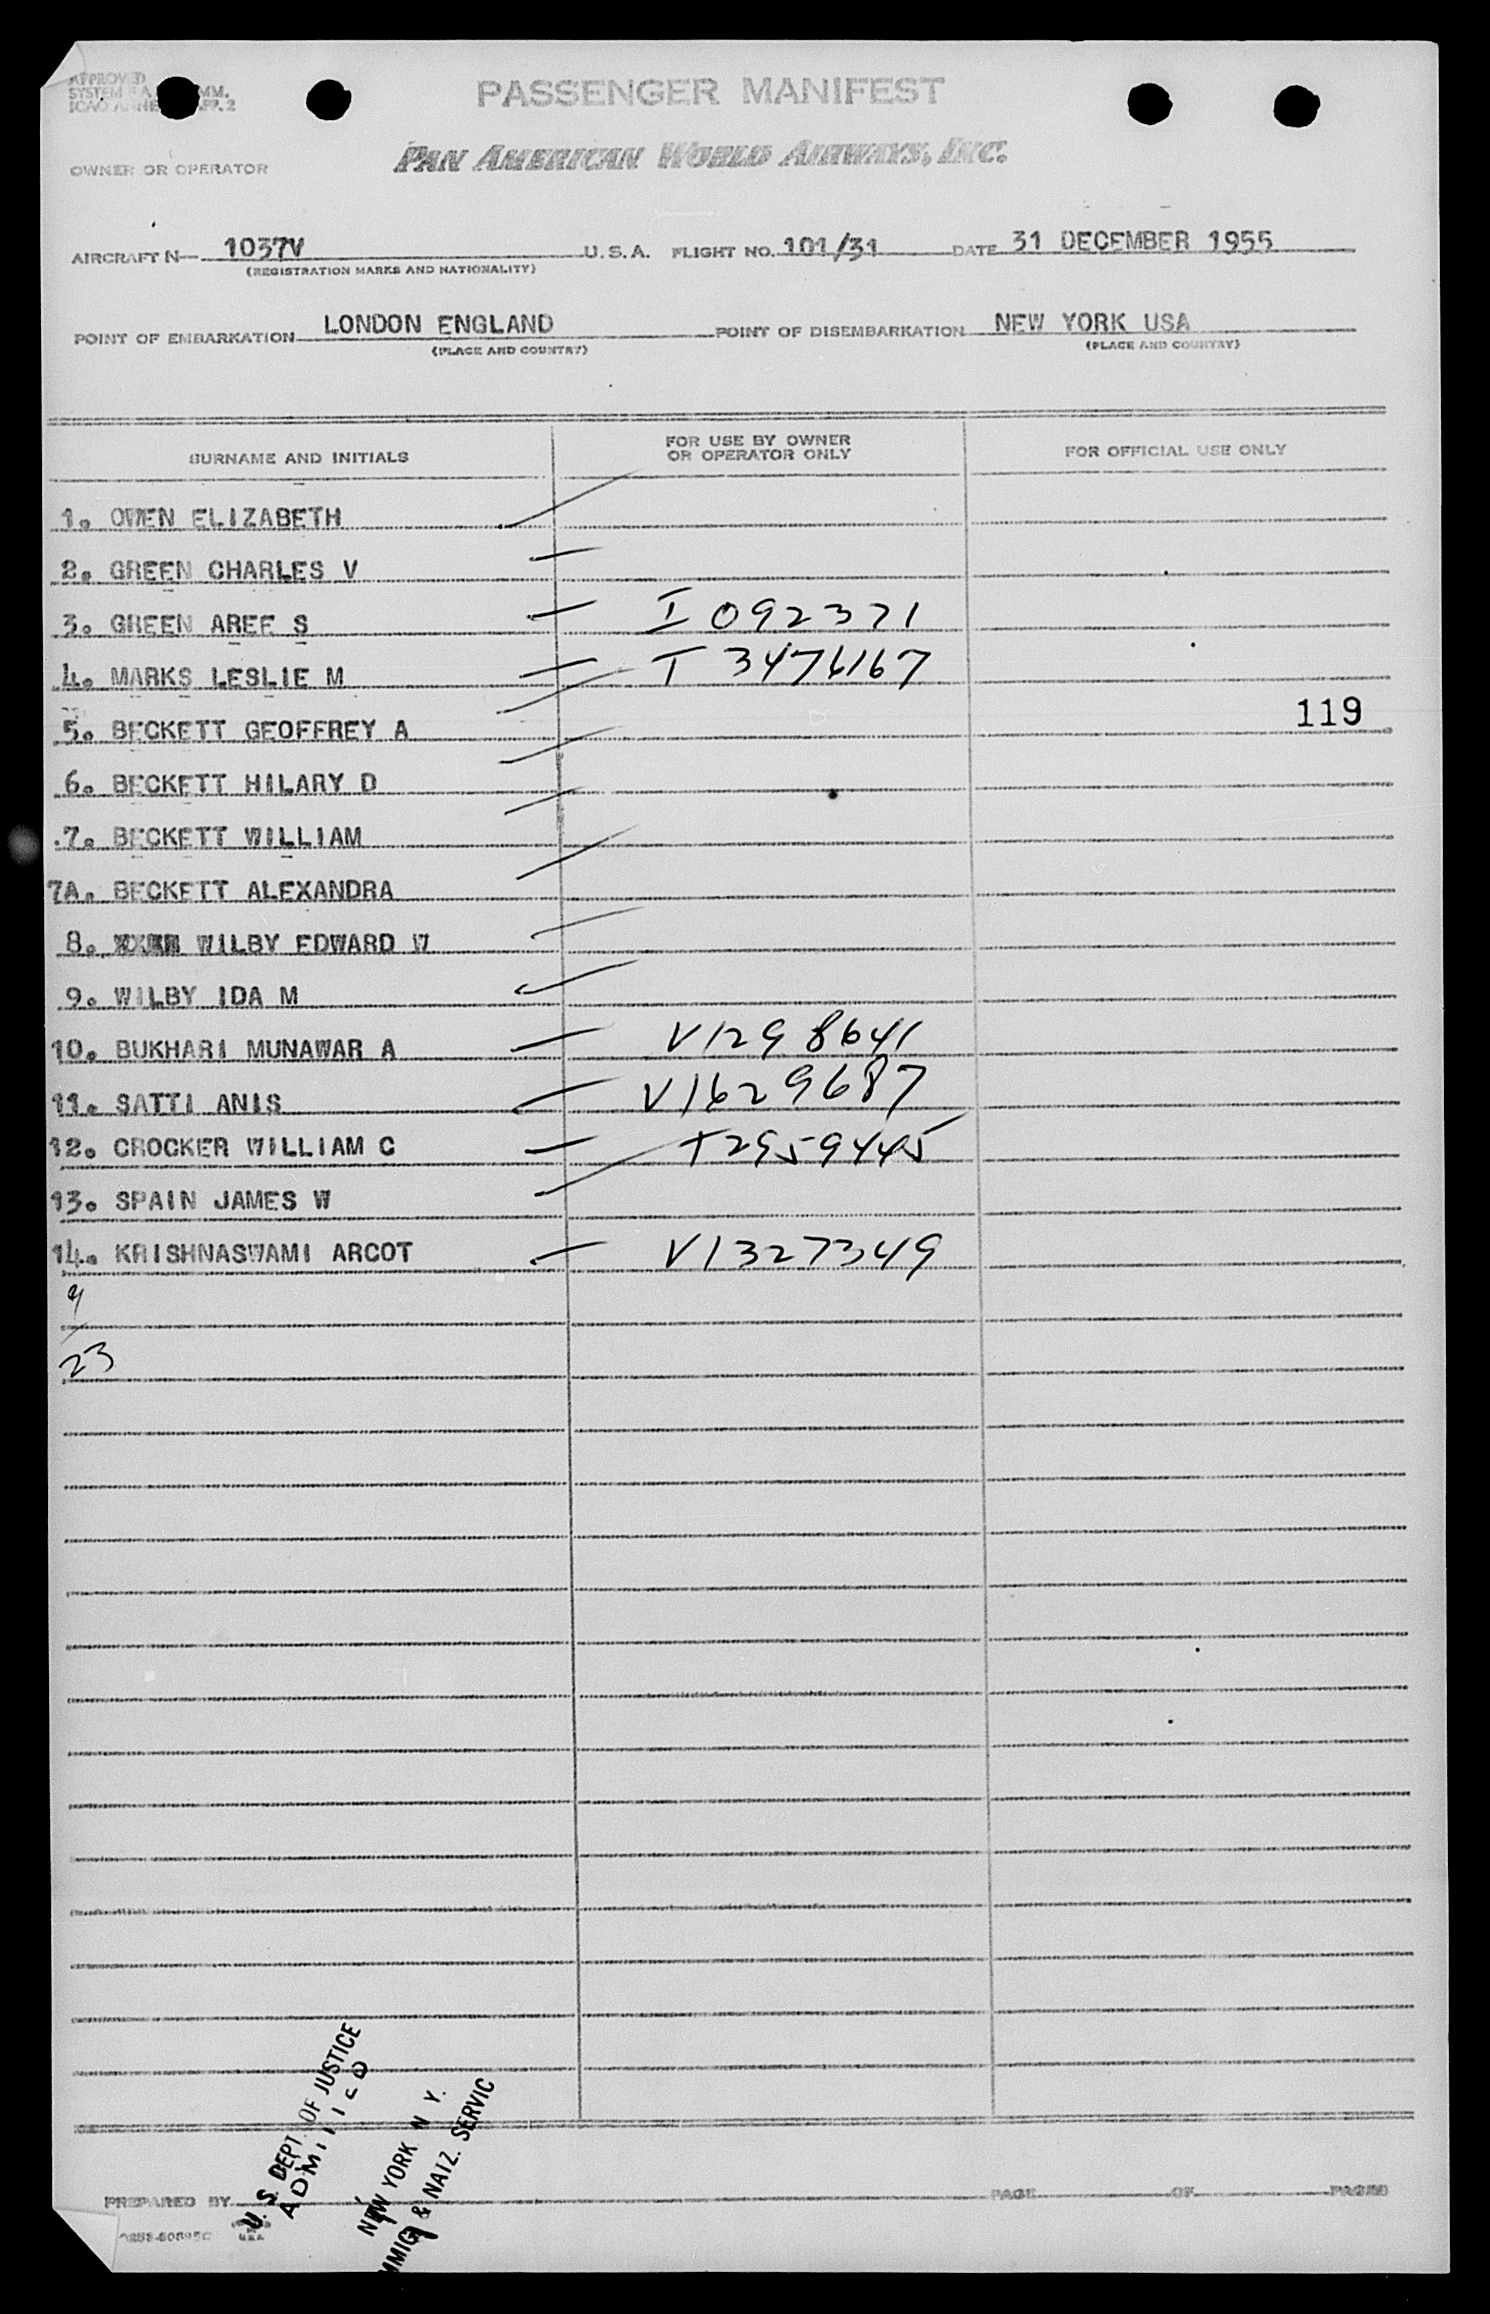 APPROVED
PASSENGER MANIFEST
OWNER OR OPERATOR
PAN AMERICAN WORLD AIRWAYS, INC.
AIRCRAFT N- 1037V U.S.A. FLIGHT NO. 101/31 DATE 31 DECEMBER 1955
(REGISTRATION MARKS AND NATIONALITY)
POINT OF EMBARKATION LONDON ENGLAND POINT OF DISEMBARKATION NEW YORK USA
(PLACE AND COUNTRY) (PLACE AND COUNTRY)
SURNAME AND INITIALS FOR USE BY OWNER OR OPERATOR ONLY FOR OFFICIAL USE ONLY
1. OWEN ELIZABETH
2. GREEN CHARLES V
3. GREEN AREE S I 092371
4. MARKS LESLIE M T 3476167
5. BECKETT GEOFFREY A 119
6. BECKETT HILARY D
7. BECKETT WILLIAM
7A. BECKETT ALEXANDRA
8. WILBY EDWARD W
9. WILBY IDA M
10. BUKHARI MUNAWAR A V1298641
11. SATTI ANIS V1629687
12. CROCKER WILLIAM C T2959445
13. SPAIN JAMES W
14. KRISHNASWAMI ARCOT V1327349
23
U. S. DEPT. OF JUSTICE
NEW YORK N Y.
IMMIG & NAIZ. SERVIC
PREPARED BY PAGE OF PAGES